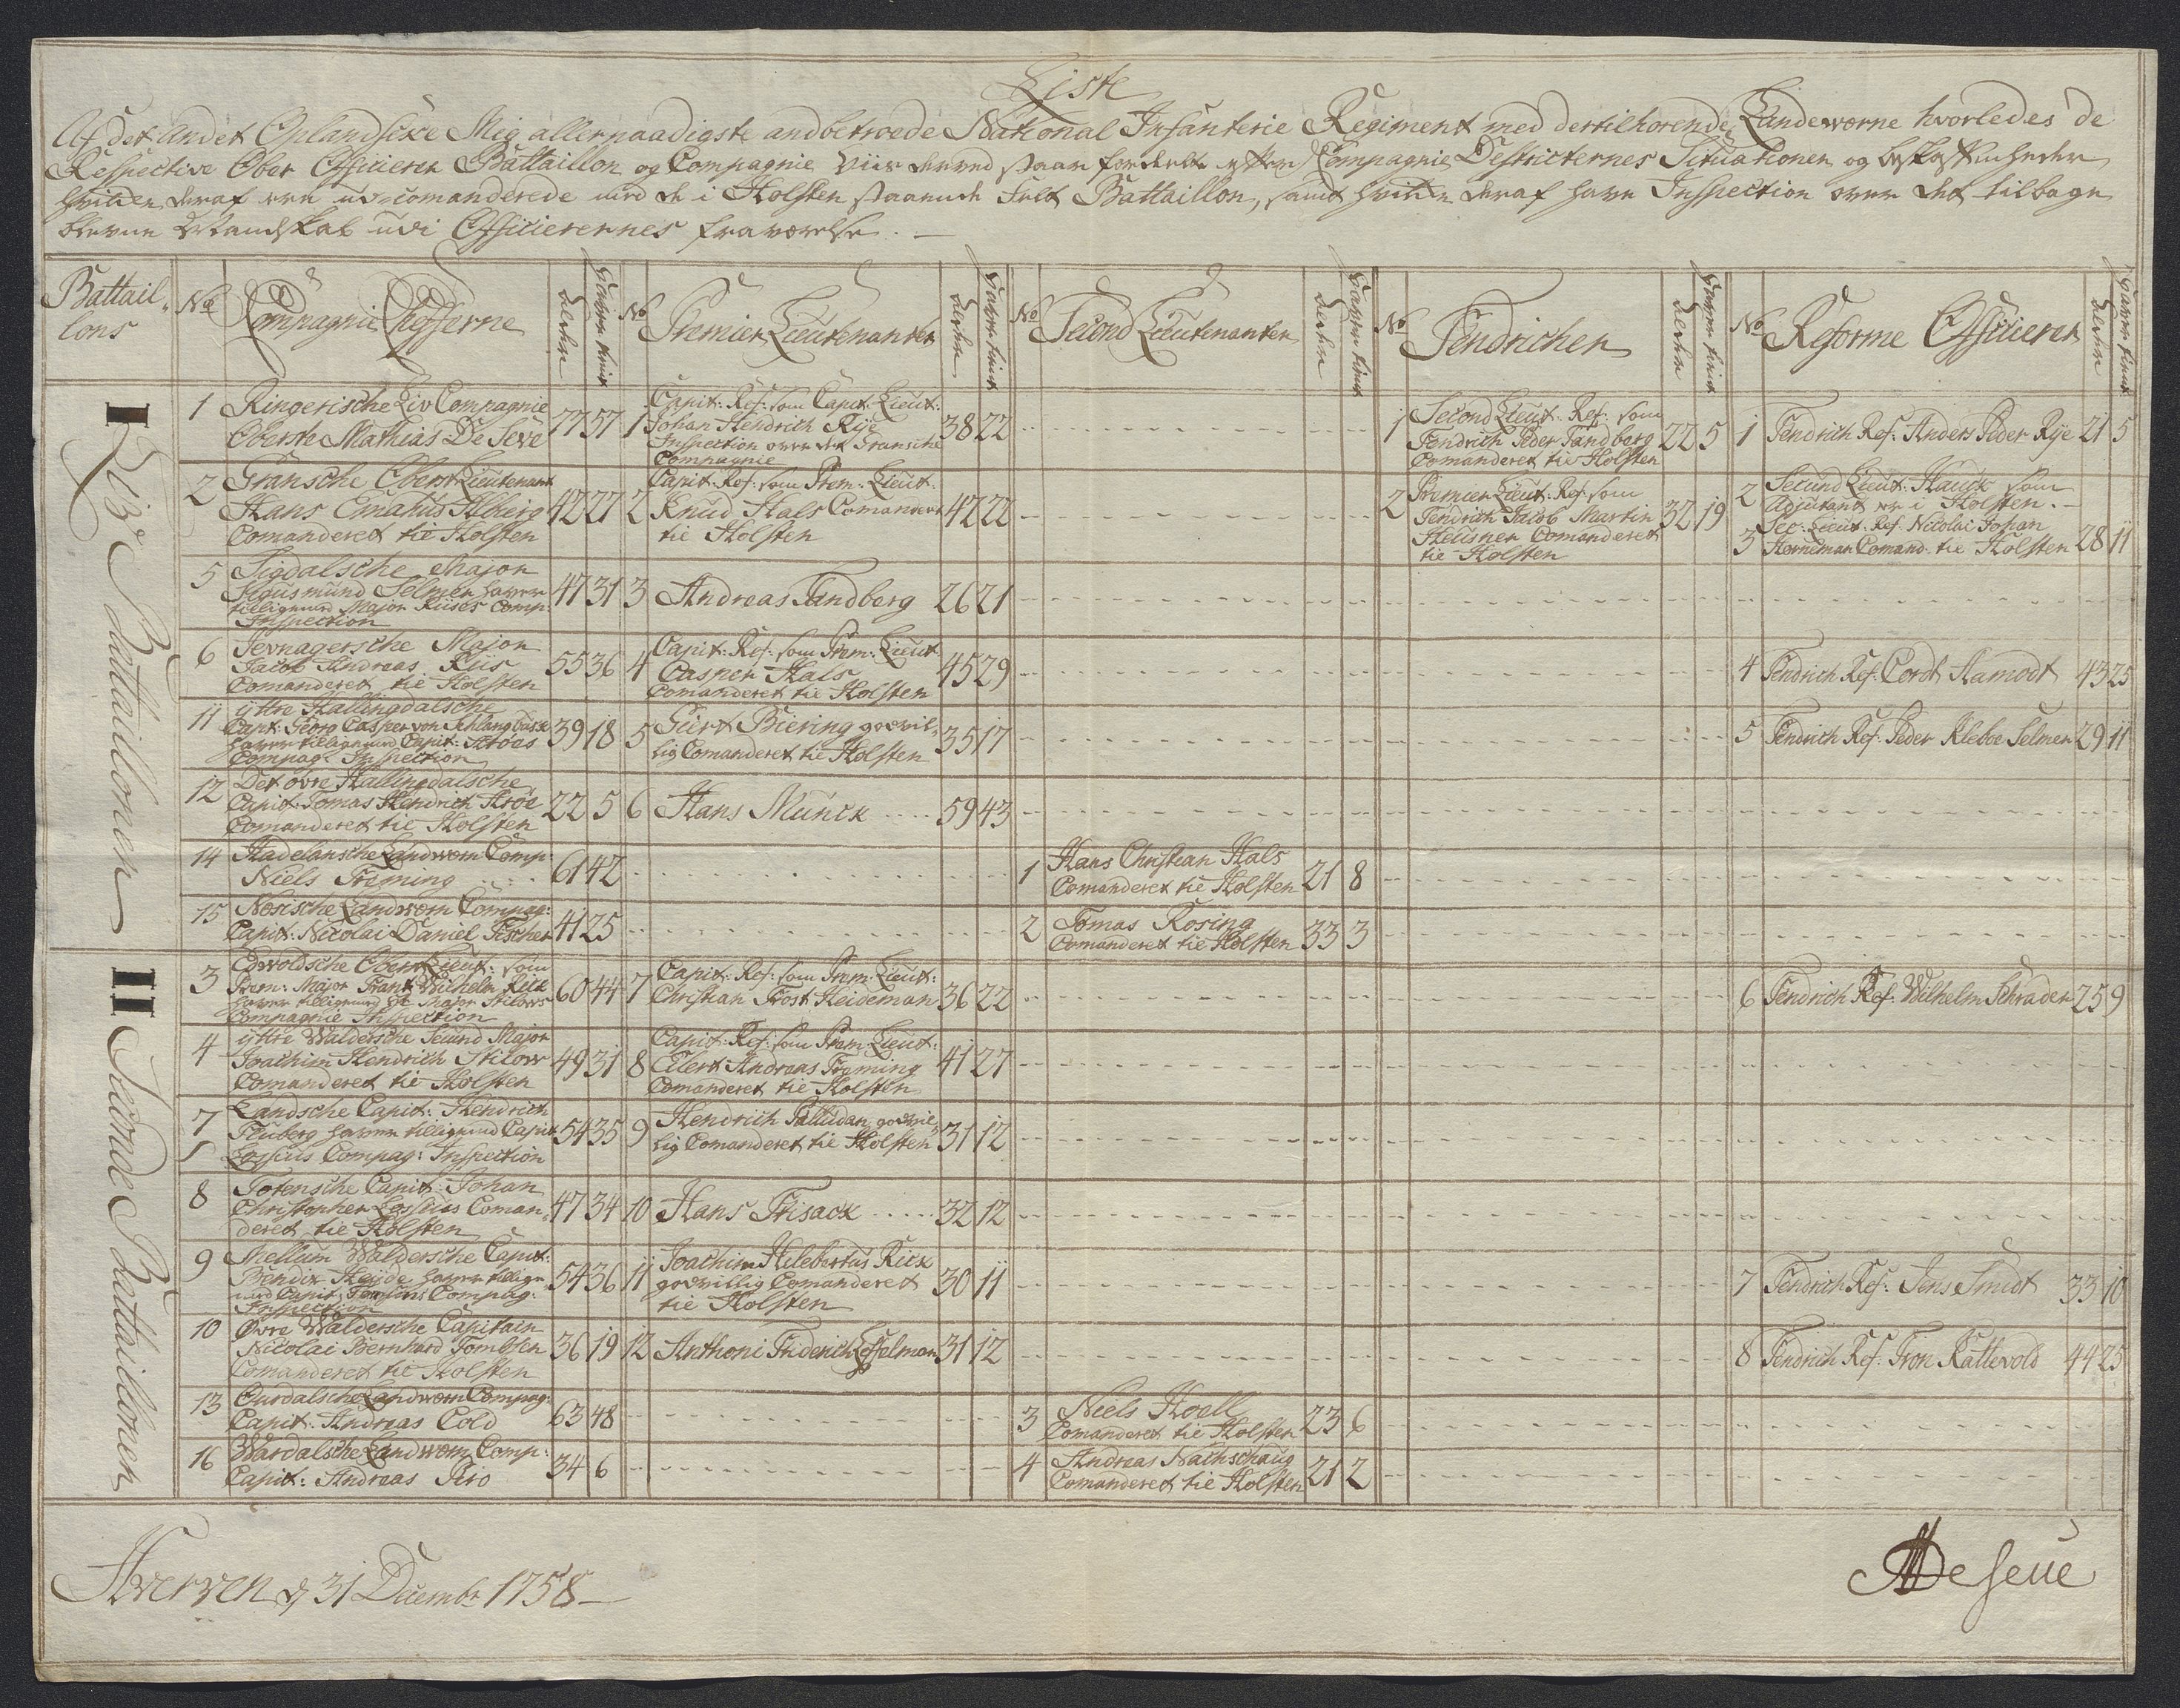 Liste
Af det Andet Oplandske Mig allernaadigste andbetroede National Infanterie Regiment med dertilhorende Landeværne hvorledes de
Respective Ober Officierer Battaillon og Compagnie Viis derved staar fordeelt efter Compagnie Destricternes Situationer og beskaffenheder
hvilke deraf ere ud-comanderede med de i Holsten staaende Felt Battaillon, samt hvilke deraf have Inspection over det tilbage
blevne Mandskab udi Officierernes fraværelse.
Battail-
lons
No
Compagnie Chefferne
Alderen
Haver tient
No
Premier Lieutenanter
Alderen
Haver tient
No
Second Lieutenanter
Alderen
Haver tient
No
Fendricher
Alderen
Haver tient
No
Reforme Officierer
Alderen
Haver tient
I Liv Battaillonen
1 Ringerische Liv Compagnie
Oberste Mathias De Seve 77 57
1 Capit: Ref: som Capit: Lieut:
Johan Hendrich Rije
Inspection over det Gransche
Compagnie 38 22
1 Second Lieut: Ref: som
Fendrich Peder Tandberg
Comanderet til Holsten 22 5
1 Fendrich Ref: Anders Peder Rije 21 5
2 Gransche Oberst Lieutenant
Hans Emahus Alberg
Comanderet til Holsten 42 27
2 Capit: Ref: som Prem: Lieut:
Knud Hals Comanderet
til Holsten 42 22
2 Premier Lieut: Ref: som
Fendrich Jacob Martin
Meisner Comanderet
til Holsten 32 19
2 Secund Lieut: Hauck som
Adjutant er i Holsten.
3 Sec: Lieut: Ref: Nicolai Johan
Horneman Comand: til Holsten 28 11
5 Sigdalsche Major
Sigusmund Selmer haver
tilligemed Major Riises Comp:
Inspection 47 31
3 Andreas Tandberg 26 21
6 Jevnagersche Major
Jacob Andreas Riis
Comanderet til Holsten 55 36
4 Capit: Ref: som Prem: Lieut
Casper Hals
Comanderet til Holsten 45 29
4 Fendrich Ref: Cordt Aamodt 43 25
11 ÿttre Hallingdalsche
Capt: Georg Casper von Schlangbusch
haver tilligemed Capit: Krøes
Compag: Inspection 39 18
5 Giert Biering godvil-
lig Comanderet til Holsten 35 17
5 Fendrich Ref: Peder Kleboe Selmer 29 11
12 Det øvre Hallingdalsche
Capit: Tomas Hendrich Krøe
Comanderet til Holsten 22 5
6 Hans Munck 59 43
14 Hadelansche Landværn Comp:
Niels Freming 61 42
1 Hans Christian Hals
Comanderet til Holsten 21 8
15 Nøsische Landværn Compag:
Capit: Nicolai Daniel Fischer 41 25
2 Tomas Rosing
Comanderet til Holsten 33 3
II Secunde Battaillonen
3 Edvoldsche Oberst Lieut: som
Prem: Major Frantz Wilhelm Rick
haver tilligemed Sec Major Stilows
Compagnie Inspection 60 44
7 Capit: Ref: som Prem: Lieut:
Christian Frost Heideman 36 22
6 Fendrich Ref: Wilhelm Schrader 25 9
4 ÿttre Waldersche Secund Major
Joachim Hendrich Stilow
Comanderet til Holsten 49 31
8 Capit: Ref: som Prem: Lieut:
Eilert Andreas Freming
Comanderet til Holsten 41 27
7 Landsche Capit: Hendrich
Fluberg haver tilligemed Capit
Lossius Compag: Inspection 54 35
9 Hendrich Palludan, godvil-
lig Comanderet til Holsten 31 12
8 Totensche Capit: Johan
Christopher Lossius Coman-
deret til Holsten 47 34
10 Hans Frisack 32 12
9 Mellum Waldersche Capit:
Bendix Heijde haver tillige
med Capit: Tomsens Compag:
Inspection 54 36
11 Joachim Hilebertus Rick
godvillig Comanderet
til Holsten 30 11
7 Fendrich Ref: Jens Smidt 33 10
10 Øvre Waldersche Capitain
Nicolai Bernhard Tombsen
Comanderet til Holsten 36 19
12 Anthoni Friderich Coffelman 31 12
8 Fendrich Ref: Tron Kattevold 44 25
13 Ourdalsche Landværn Compag:
Capit: Andreas Cold 63 48
3 Niels Hoell
Comanderet til Holsten 23 6
16 Wardalsche Landværn Comp:
Capit: Andreas Piro 34 6
4 Andreas Nachschaug
Comanderet til Holsten 21 2
Hverven d 31 Decembr 1758
MDeseue